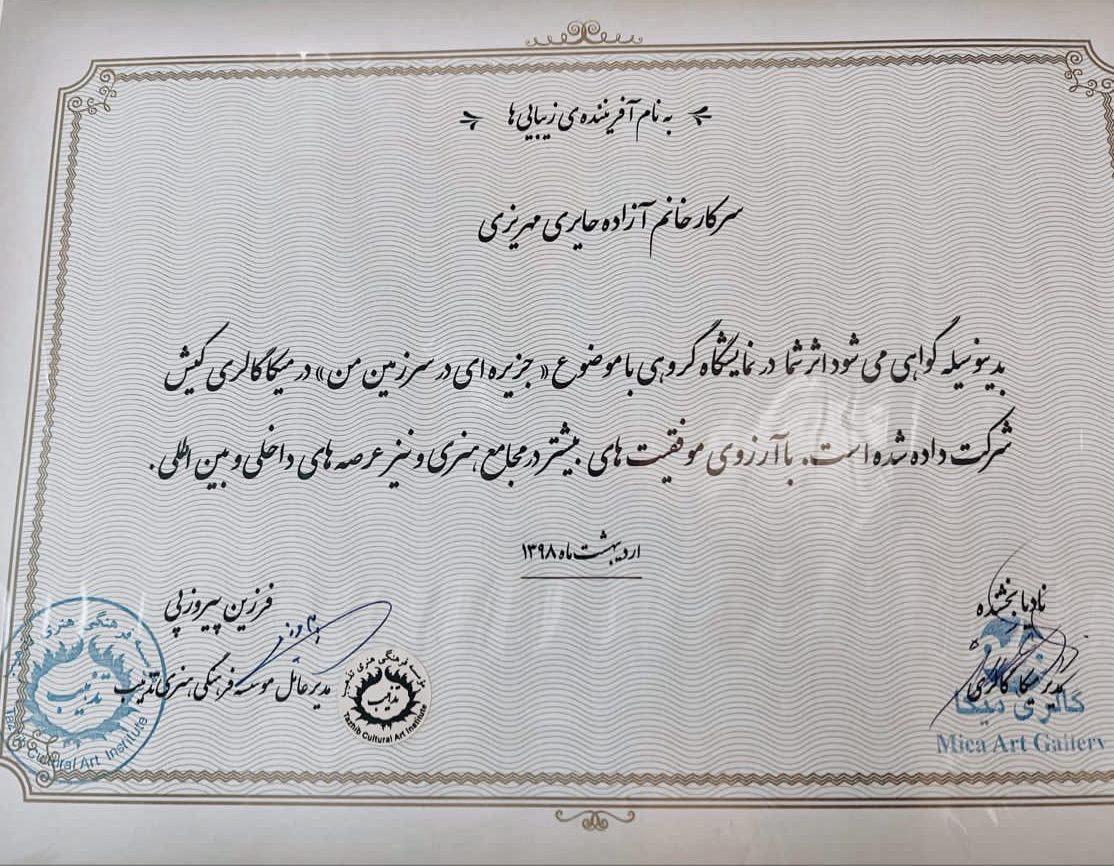 به نام آفریننده‌ی زیبایی ها
سرکار خانم آزاده حایری مهریزی
بدینوسیله گواهی می شود اثر شما در نمایشگاه گروهی با موضوع « جزیره ای در سرزمین من» در میکا گالری کیش
شرکت داده شده است. با آرزوی موفقیت های بیشتر در مجامع هنری و نیز عرصه های داخلی و بین اللملی.
اردیبهشت ماه ۱۳۹۸
نادیا بخشنده
مدیر میکا گالری
گالری میکا
Mica Art Gallery
فرزین پیروزپی
مدیر عامل موسسه فرهنگی هنری تذهیب
موسسه فرهنگی هنری تذهیب
تذهیب
Tazhib Cultural Art Institute
تذهیب
Cultural Art Institute